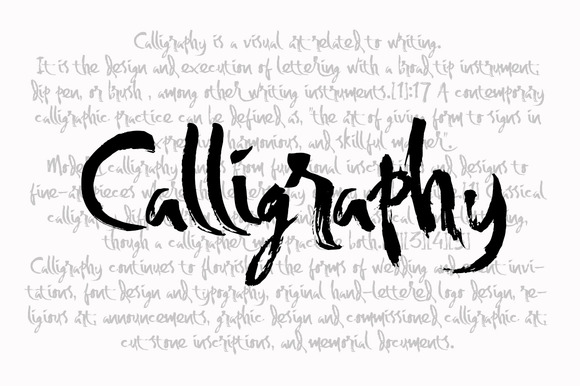 Calligraphy is a visual art related to writing.
It is the design and execution of lettering with a broad tip instrument,
dip pen, or brush , among other writing instruments.[1]:17 A contemporary
calligraphic practice can be defined as, "the art of giving form to signs in
expressive, harmonious, and skillful manner".
Modern calligraphy from functional and designs to
fine-art pieces where Classical
Calligraphy
calligraphy
though a calligrapher may practice both.
Calligraphy continues to flourish in the forms of wedding and event invi-
tations, font design and typography, original hand-lettered logo design, re-
ligious art, announcements, graphic design and commissioned calligraphic art,
cut stone inscriptions, and memorial documents.